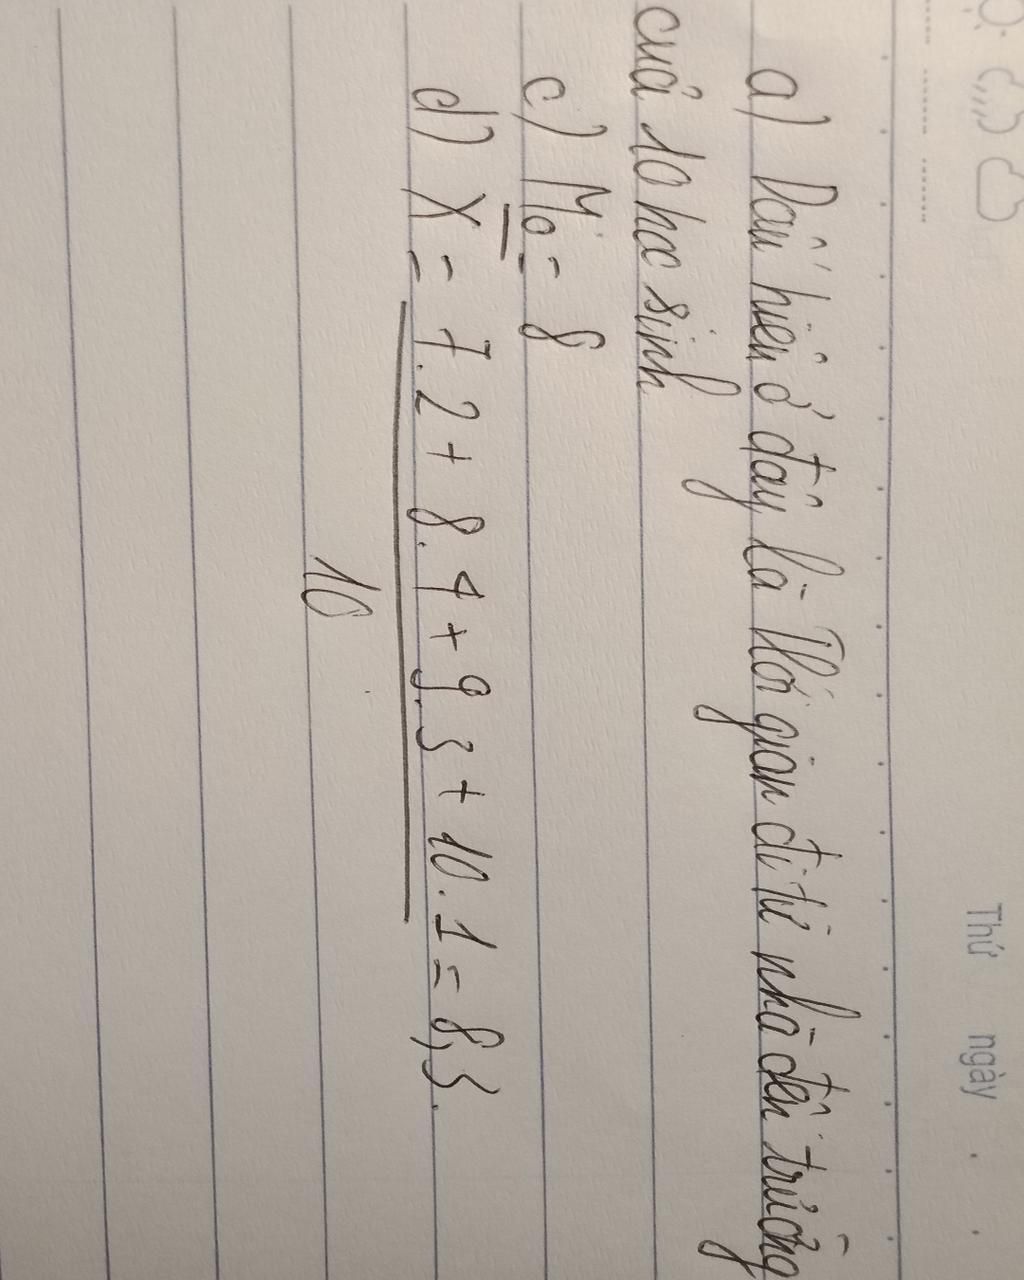 Thứ ngày
a) Dấu hiệu ở đây là Thời gian đi từ nhà đến trường
của 10 học sinh
c) M₀ = 8
d) X̄ = 7.2 + 8.4 + 9.3 + 10.1 = 8,3.
10